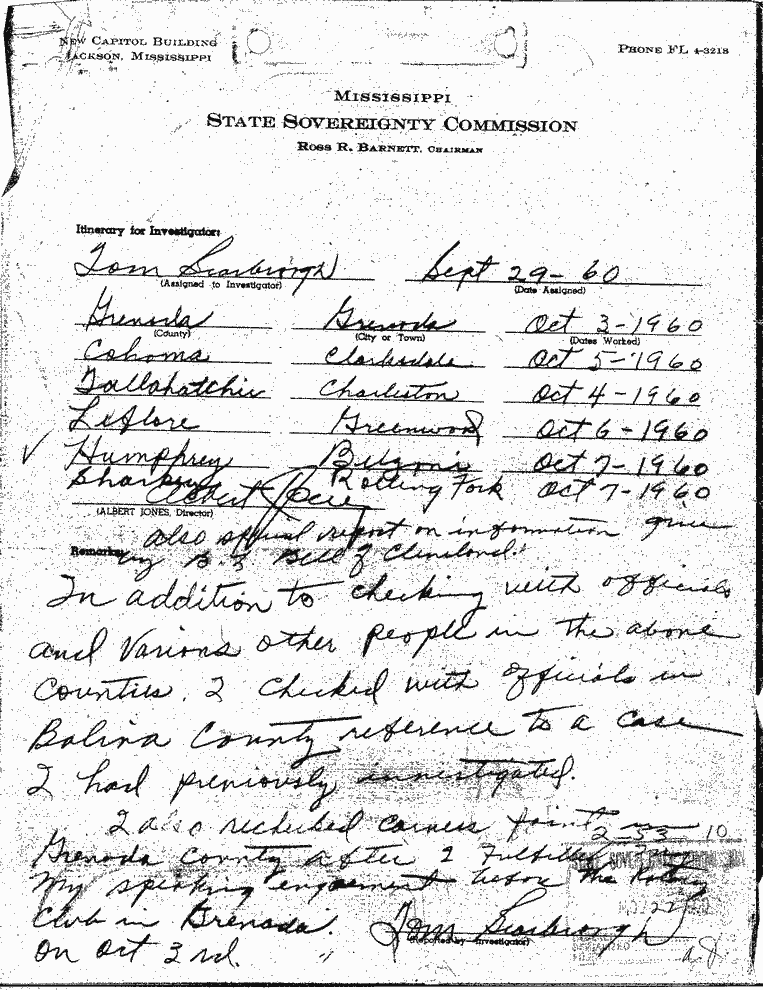 NEW CAPITOL BUILDING
JACKSON, MISSISSIPPI
PHONE FL 4-3218
MISSISSIPPI
STATE SOVEREIGNTY COMMISSION
ROSS R. BARNETT, CHAIRMAN
Itinerary for Investigator:
Tom Scarbrough Sept 29-60
(Assigned to Investigator) (Date Assigned)
Grenada Grenada Oct 3-1960
(County) (City or Town) (Dates Worked)
Cohoma Clarksdale Oct 5-1960
Tallahatchie Charleston Oct 4-1960
Leflore Greenwood Oct 6-1960
✓ Humphrey Belzoni Oct 7-1960
Sharkey Rolling Fork Oct 7-1960
Albert Jones
(ALBERT JONES, Director)
also special report on information given
Remarks: by B. L. Bell of Cleveland.
In addition to checking with officials
and Various other people in the above
Counties. I checked with officials in
Boliva County reference to a case
I had previously investigated.
I also rechecked Carness Joint
2-53 10
Grenada County after I Fulfilled
My speaking engagement before the Rotary
Club in Grenada.
on Oct 3rd.
Tom Scarbrough
(Reported by Investigator)